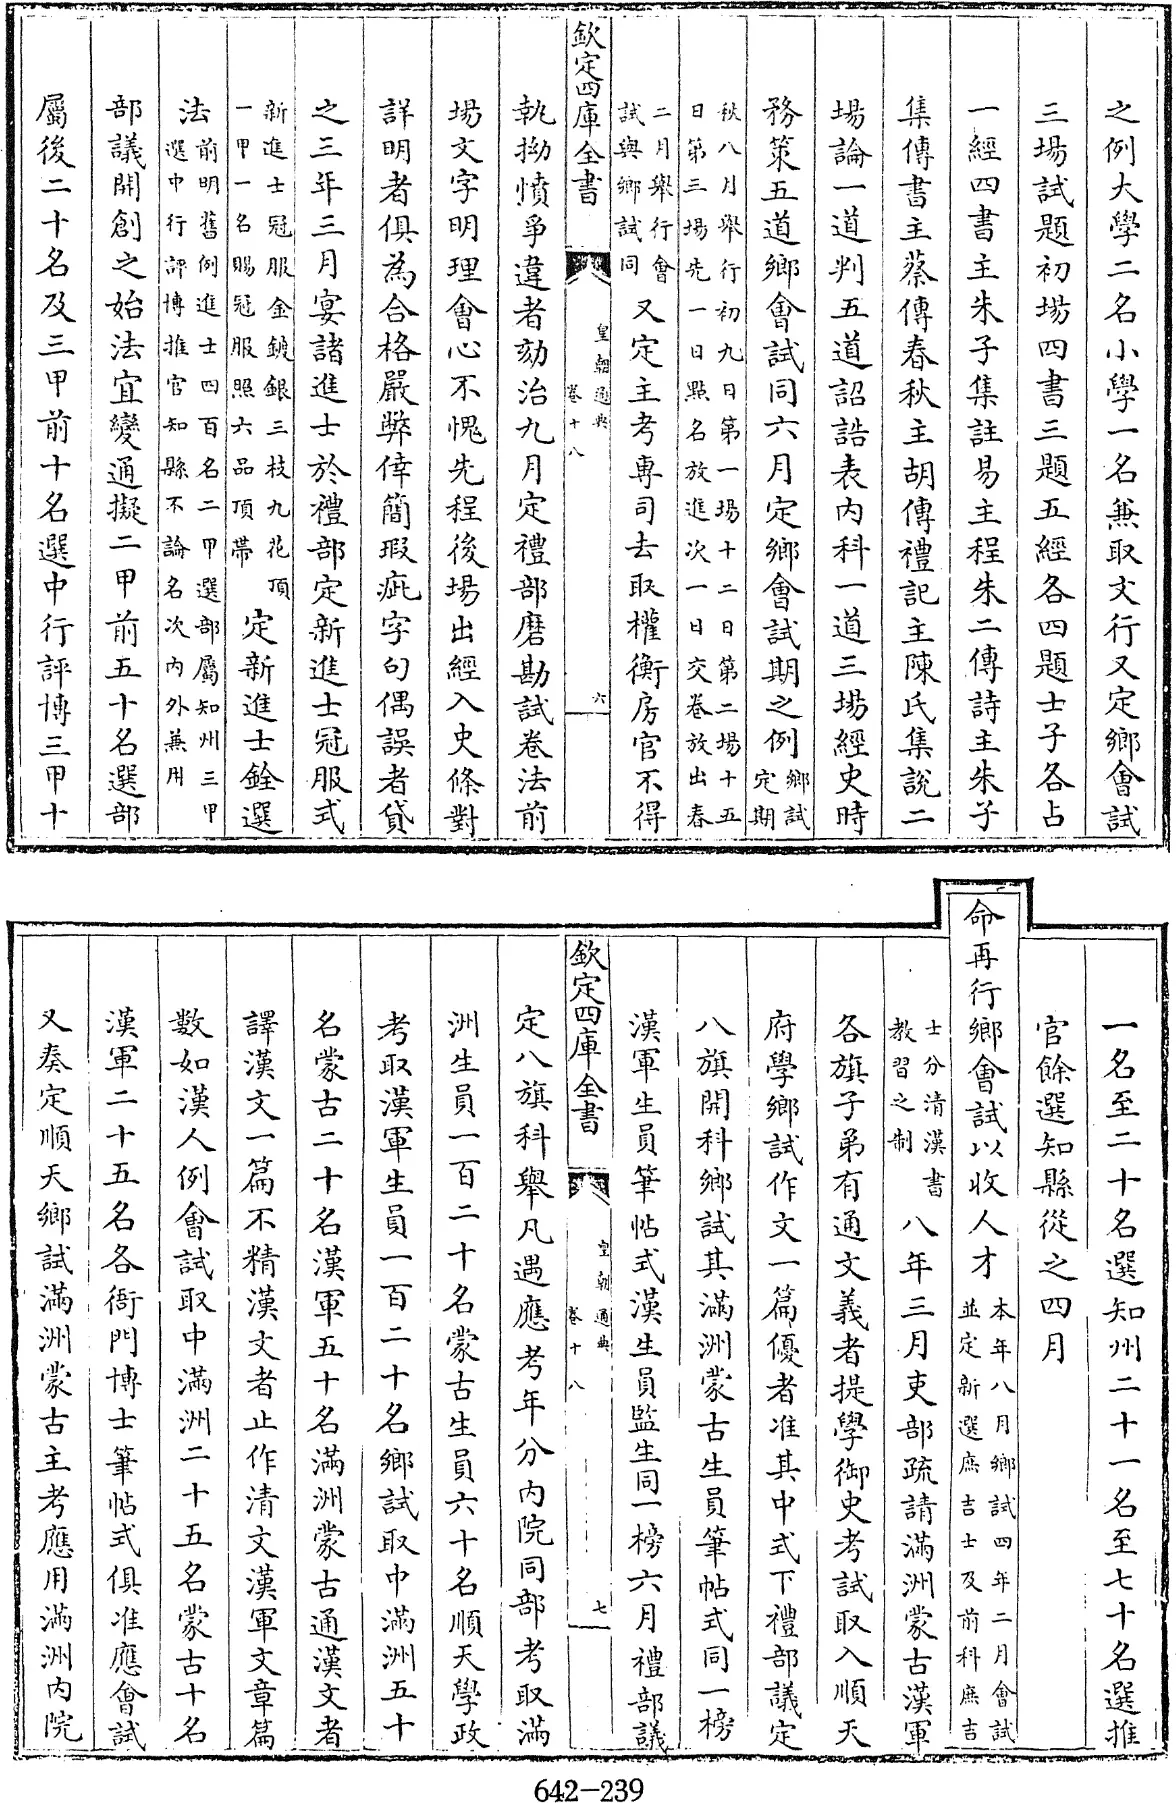 之例大學二名小學一名兼取文行又定鄉會試
三場試題初場四書三題五經各四題士子各占
一經四書主朱子集註易主程朱二傳詩主朱子
集傳書主蔡傳春秋主胡傳禮記主陳氏集說二
場論一道判五道詔誥表內科一道三場經史時
務策五道鄉會試同六月定鄉會試期之例鄉試定期
秋八月舉行初九日第一場十二日第二場十五
日第三場先一日點名放進次一日交卷放出春
二月舉行會
試與鄉試同
又定主考專司去取權衡房官不得
欽定四庫全書
皇朝通典
卷十八
六
執拗憤爭違者劾治九月定禮部磨勘試卷法前
場文字明理會心不愧先程後場出經入史條對
詳明者俱為合格嚴弊倖簡瑕疵字句偶誤者貸
之三年三月宴諸進士於禮部定新進士冠服式
新進士冠服金鍍銀三枝九花頂
一甲一名賜冠服照六品頂帶
定新進士銓選
法
前明舊例進士四百名二甲選部屬知州三甲
選中行評博推官知縣不論名次內外兼用
部議開創之始法宜變通擬二甲前五十名選部
屬後二十名及三甲前十名選中行評博三甲十
一名至二十名選知州二十一名至七十名選推
官餘選知縣從之四月
命再行鄉會試以收人才
本年八月鄉試四年二月會試
並定新選庶吉士及前科庶吉
士分清漢書
教習之制
八年三月吏部疏請滿洲蒙古漢軍
各旗子弟有通文義者提學御史考試取入順天
府學鄉試作文一篇優者准其中式下禮部議定
八旗開科鄉試其滿洲蒙古生員筆帖式同一榜
漢軍生員筆帖式漢生員監生同一榜六月禮部議
欽定四庫全書
皇朝通典
卷十八
七
定八旗科舉凡遇應考年分內院同部考取滿
洲生員一百二十名蒙古生員六十名順天學政
考取漢軍生員一百二十名鄉試取中滿洲五十
名蒙古二十名漢軍五十名滿洲蒙古通漢文者
譯漢文一篇不精漢文者止作清文漢軍文章篇
數如漢人例會試取中滿洲二十五名蒙古十名
漢軍二十五名各衙門博士筆帖式俱准應會試
又奏定順天鄉試滿洲蒙古主考應用滿洲內院
642-239